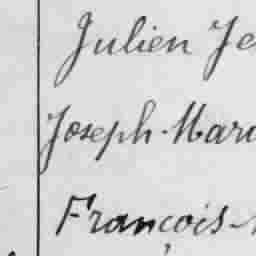 Julien Je
Joseph-Mari
François-